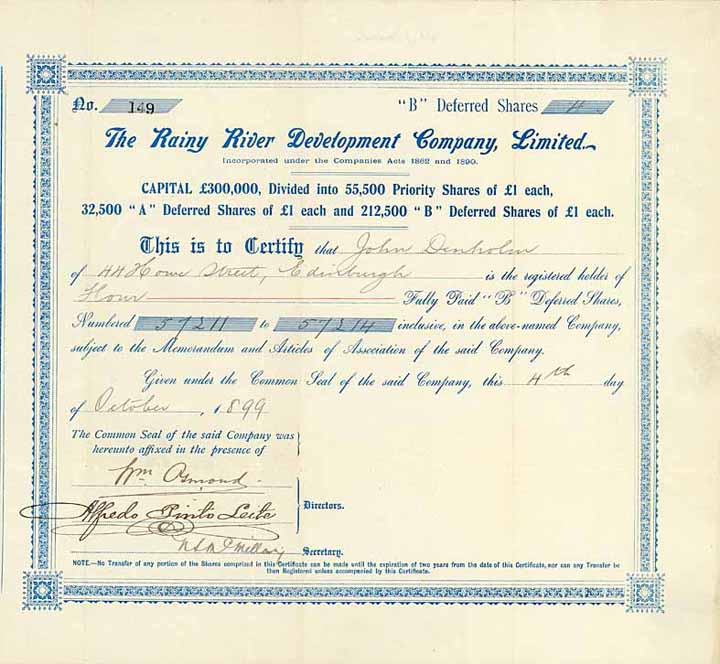 No. 149 "B" Deferred Shares 4
The Rainy River Development Company, Limited.
Incorporated under the Companies Acts 1862 and 1890.
CAPITAL £300,000, Divided into 55,500 Priority Shares of £1 each,
32,500 "A" Deferred Shares of £1 each and 212,500 "B" Deferred Shares of £1 each.
This is to Certify that John Denholm
of 44 Howe Street, Edinburgh is the registered holder of
Four Fully Paid "B" Deferred Shares,
Numbered 57211 to 57214 inclusive, in the above-named Company,
subject to the Memorandum and Articles of Association of the said Company.
Given under the Common Seal of the said Company, this 4th day
of October, 1899
The Common Seal of the said Company was
hereunto affixed in the presence of
Wm Osmond
Alfredo Pinto Leite
Directors.
McMillan
Secretary.
NOTE.—No Transfer of any portion of the Shares comprised in this Certificate can be made until the expiration of two years from the date of this Certificate, nor can any Transfer be
then Registered unless accompanied by this Certificate.